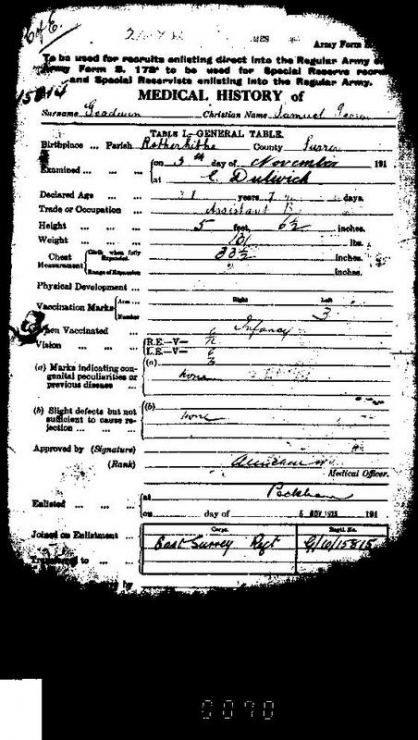 C of E
Army Form B.
To be used for recruits enlisting direct into the Regular Army or
Army Form B. 178A to be used for Special Reserve recruits
and Special Reservists enlisting into the Regular Army.
MEDICAL HISTORY of
Surname Goodwin Christian Name Samuel George
TABLE I.—GENERAL TABLE.
Birthplace ... Parish Rotherhithe County Surrey
Examined ... on 5th day of November 191
at E. Dulwich
Declared Age ... 31 years 7 days.
Trade or Occupation ... Assistant
Height ... 5 feet, 6½ inches.
Weight ... lbs.
Chest Measurement Girth when fully Expanded 33½ inches.
Range of Expansion 2 inches.
Physical Development ...
Vaccination Marks Arm ... Right Left
Number 3
When Vaccinated ... Infancy
Vision ... R.E.—V—
L.E.—V—
(a) Marks indicating congenital peculiarities or previous disease ... (a)
None
(b) Slight defects but not sufficient to cause rejection ... (b)
None
Approved by (Signature)
(Rank)
Medical Officer.
Enlisted ... at Peckham
on day of 5 NOV 1915 191
Corps. Regtl. No.
Joined on Enlistment ... East Surrey Regt G/10/15815
to ...
by
0070